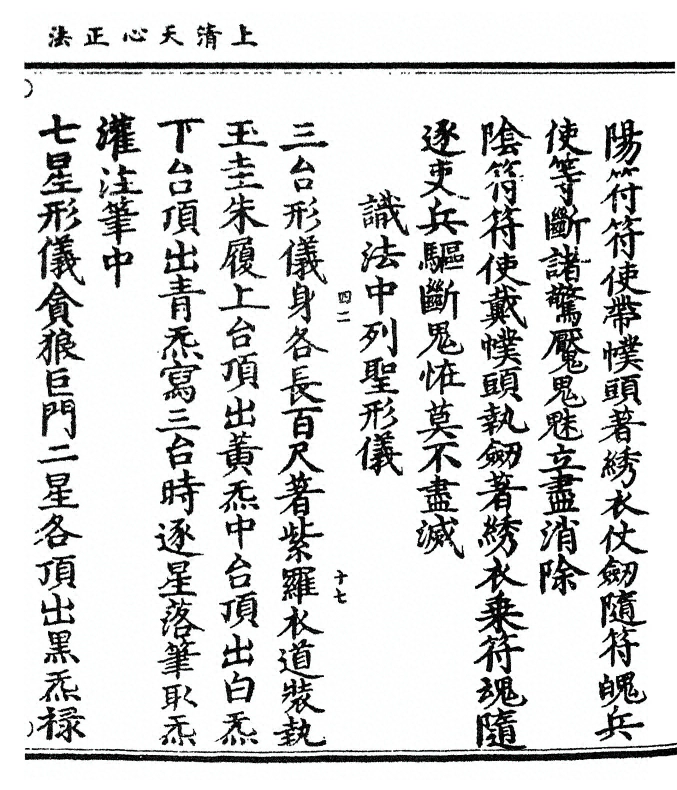 上清天心正法
陽符符使帶幞頭著綉衣仗劒隨符魄兵
使等斷諸驚魘鬼魅立盡消除
陰符符使戴幞頭執劒著綉衣乗符魂隨
逐吏兵驅斷鬼恠莫不盡滅
識法中列聖形儀
四二
十七
三台形儀身各長百尺著紫羅衣道裝執
玉圭朱履上台頂出黃炁中台頂出白炁
下台頂出青炁寫三台時逐星落筆取炁
灌注筆中
七星形儀貪狼巨門二星各頂出黑炁祿